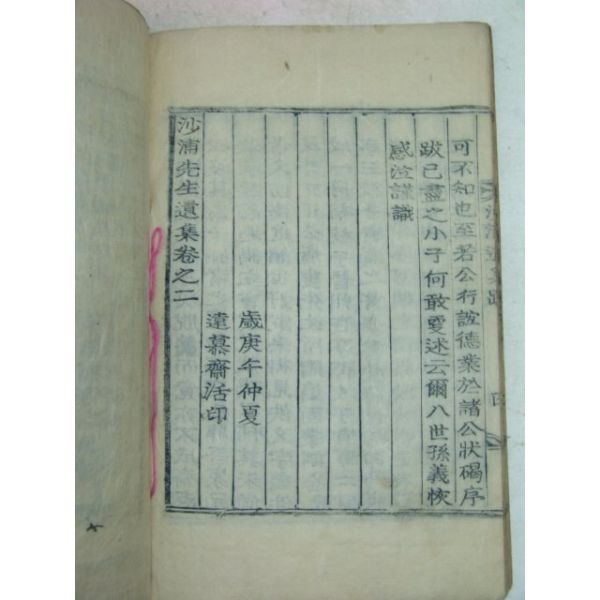 可不知也至若公行誼德業於諸公狀碣序
跋已盡之小子何敢更述云爾八世孫義悏
感泣謹識
歲庚午仲夏
遠慕齋活印
沙浦先生遺集卷之二